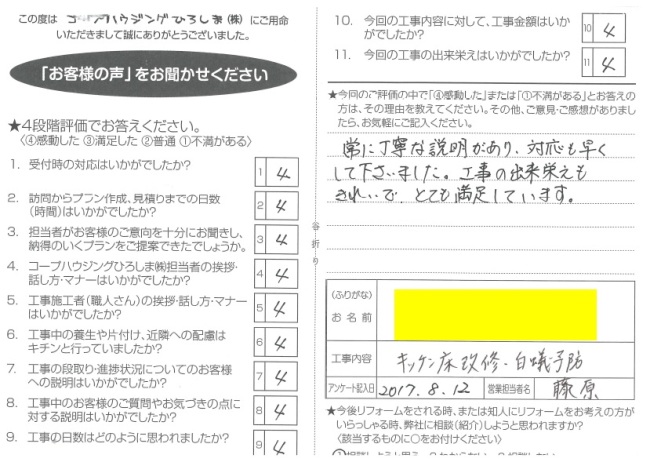 この度は コープハウジングひろしま(株) にご用命
いただきまして誠にありがとうございました。
「お客様の声」をお聞かせください
★4段階評価でお答えください。
〈④感動した ③満足した ②普通 ①不満がある〉
1. 受付時の対応はいかがでしたか? 1 4
2. 訪問からプラン作成、見積りまでの日数
(時間)はいかがでしたか? 2 4
3. 担当者がお客様のご意向を十分にお聞きし、
納得のいくプランをご提案できたでしょうか。 3 4
4. コープハウジングひろしま㈱担当者の挨拶・
話し方・マナーはいかがでしたか? 4 4
5. 工事施工者(職人さん)の挨拶・話し方・マナー
はいかがでしたか? 5 4
6. 工事中の養生や片付け、近隣への配慮は
キチンと行っていましたか? 6 4
7. 工事の段取り・進捗状況についてのお客様
への説明はいかがでしたか? 7 4
8. 工事中のお客様のご質問やお気づきの点に
対する説明はいかがでしたか? 8 4
9. 工事の日数はどのように思われましたか? 9 4
谷折り
10. 今回の工事内容に対して、工事金額はいか
がでしたか? 10 4
11. 今回の工事の出来栄えはいかがでしたか? 11 4
★今回のご評価の中で「④感動した」または「①不満がある」とお答えの
方は、その理由を教えてください。その他、ご意見・ご感想がありまし
たら、お気軽にご記入ください。
常に丁寧な説明があり、対応も早く
して下さいました。工事の出来栄えも
きれいで、とても満足しています。
(ふりがな)
お名前
工事内容 キッチン床改修・白蟻予防
アンケート記入日 2017.8.12 営業担当者名 藤原
★今後リフォームをされる時、または知人にリフォームをお考えの方が
いらっしゃる時、弊社に相談(紹介)しようと思われますか?
〈該当するものに○をお付けください〉